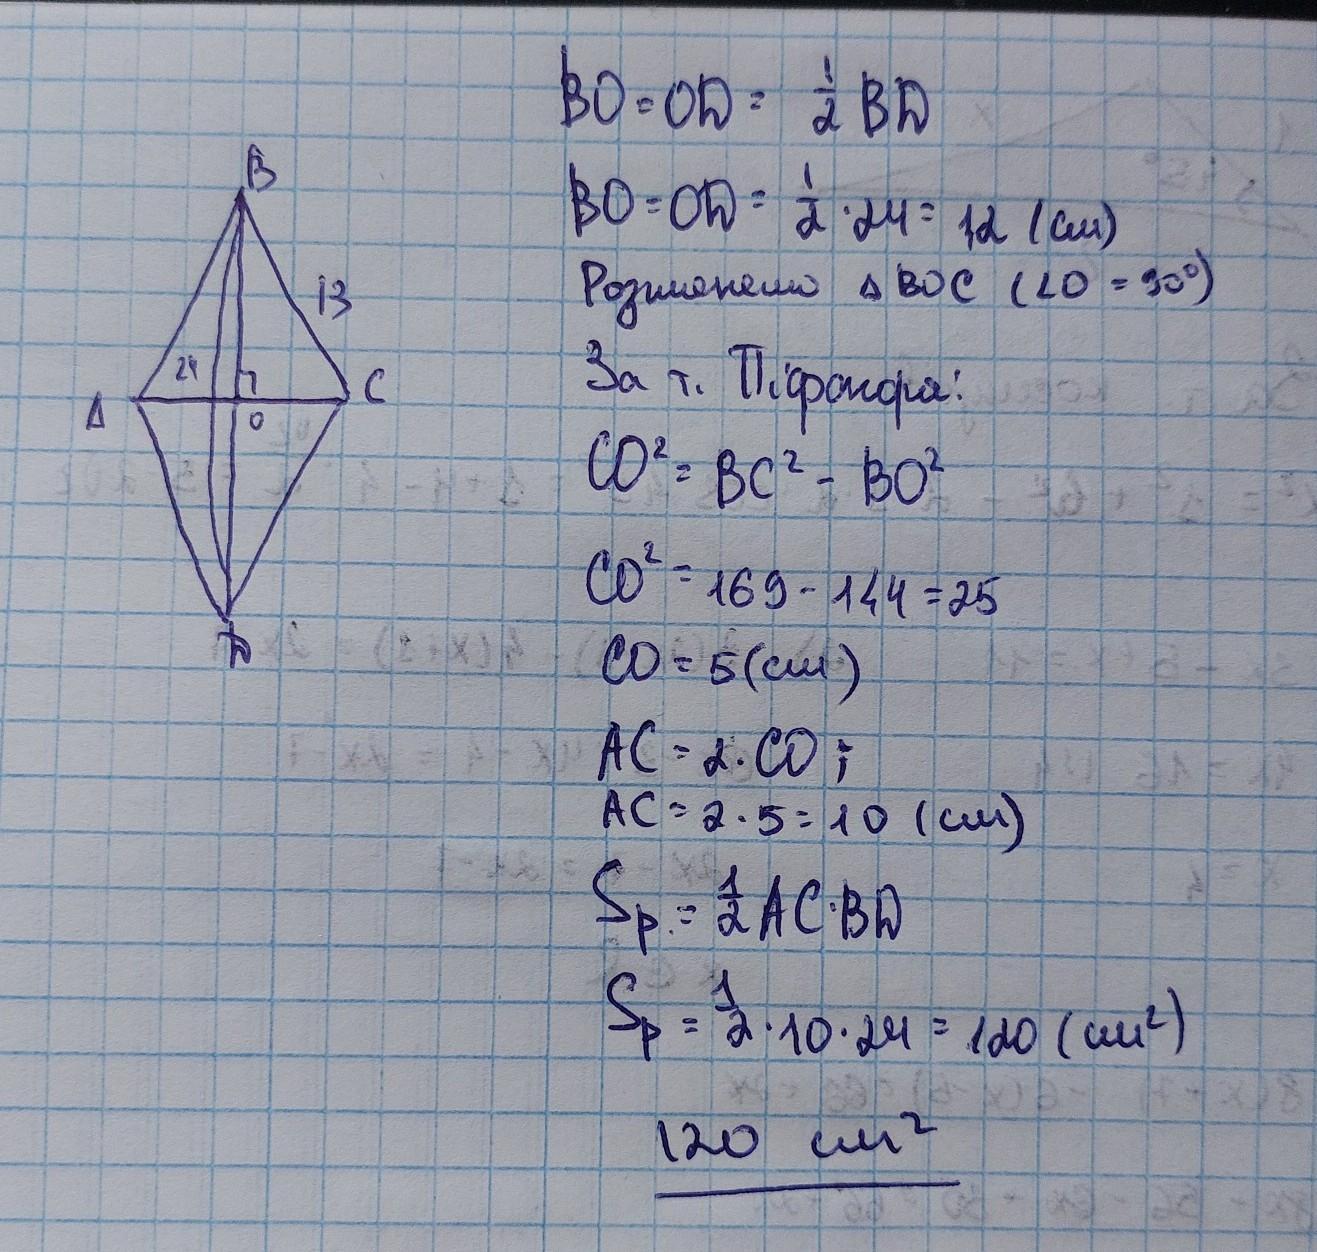 B
13
24
A
C
O
D
BO = OD = 1/2 BD
BO = OD = 1/2 · 24 = 12 (см)
Розглянемо △ BOC (∠O = 90°)
За т. Піфагора:
CO² = BC² - BO²
CO² = 169 - 144 = 25
CO = 5 (см)
AC = 2 · CO ;
AC = 2 · 5 = 10 (см)
Sр. = 1/2 AC · BD
Sр = 1/2 · 10 · 24 = 120 (см²)
120 см²